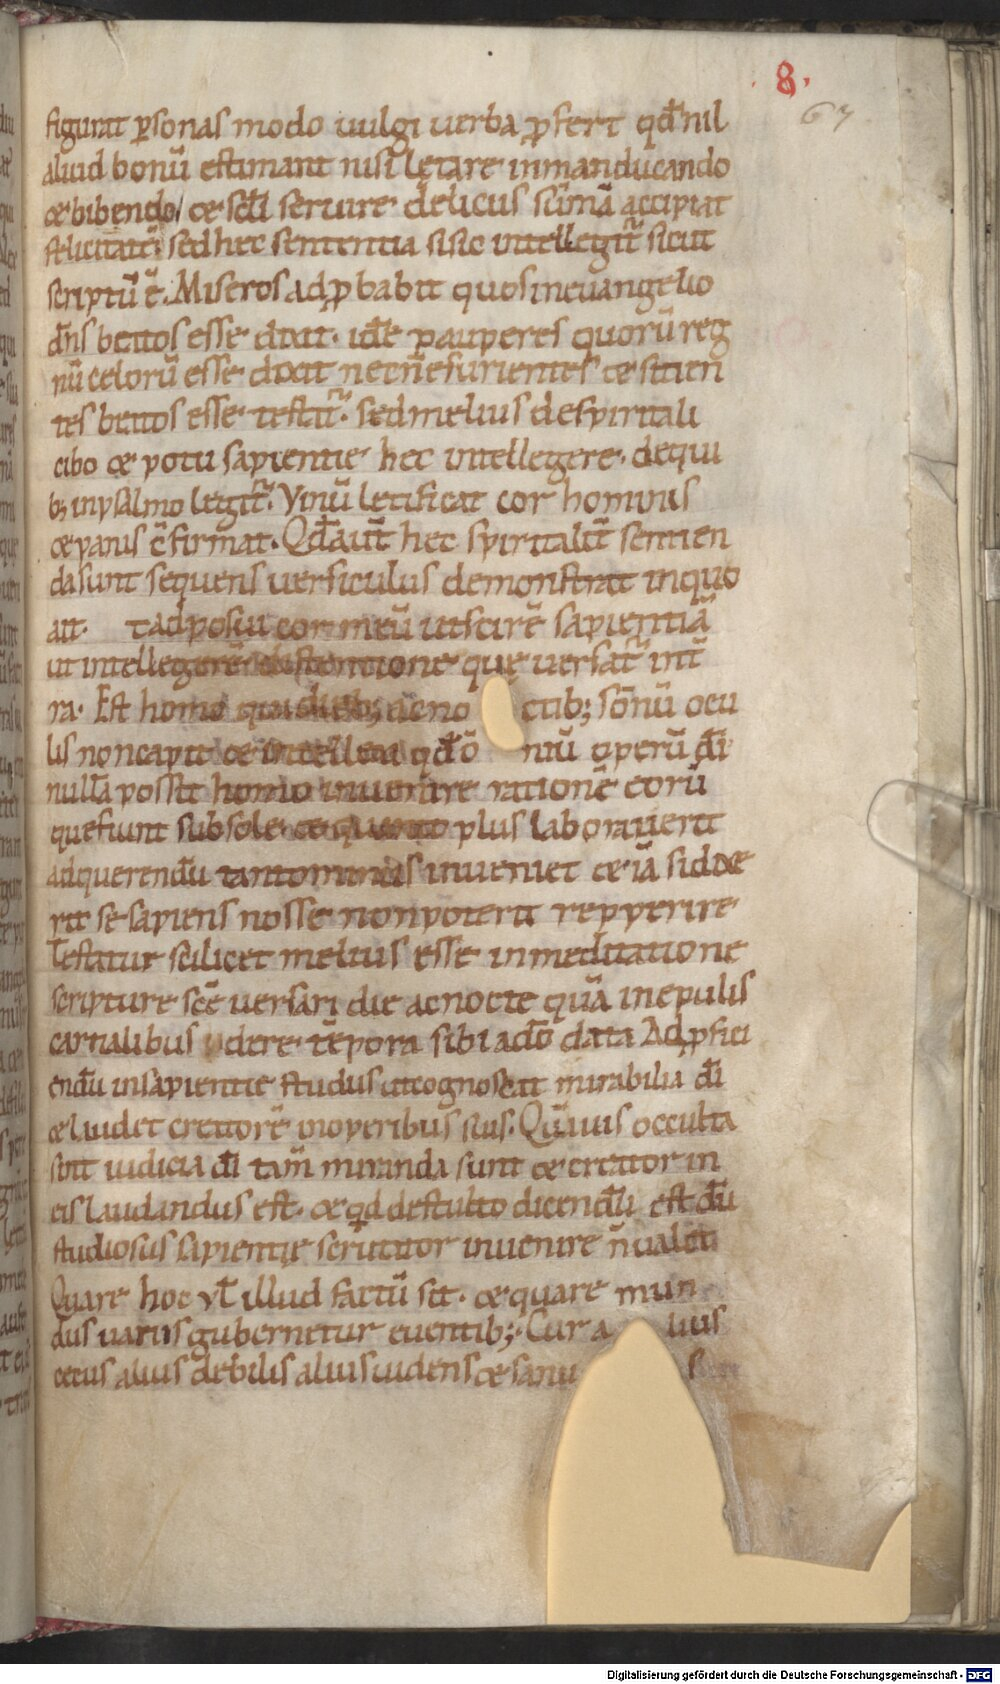 8.
67
figurat psonas modo uulgi uerba ꝓfert qđ nil
aliud bonū estimant nisi lętare inmanducando
& bibendo / & scłi seruire deliciis sūmā accipiat
felicitatē; sed hec sententia si sic intellegit̄ sicut
scriptū ē. Miseros adꝓbabit quos in euangelio
dn̄s beatos esse dixit. idē pauperes quorū reg
nū celorū esse dixit nec n̄ esurientes & sitien
tes beatos esse testat̄. sed melius de spiritali
cibo & potu sapientie hec intellegere. de qui
b; in psalmo legit̄. Vinū letificat cor hominis
& panis c̄firmat. Qđ aut̄ hec spiritalit̄ sentien
da sunt sequens uersiculus demonstrat in quo
ait. & adposui cor meū ut scirē sapientiā
ut intellegerē distentione que uersat̄ int̄
ra. Est homo qui dieb; ac no ctib; sōnū ocu
lis non capit & intellexi qđ ō niū operū dī
nullā possit homo inuenire rationē eorū
que fiunt sub sole & quanto plus laborauerit
ad querendū tanto minus inueniet & iā si dixe
rit se sapiens nosse non poterit repperire
Testatur scilicet melius esse inmeditatione
scripture scē uersari die ac nocte quā in epulis
carnalibus dere tēpora sibi a dō data Ad ꝓfici
endū in sapientie studiis ut cognoscat mirabilia dī
& laudet creatorē in operibus suis. Quāuis occulta
sint iudicia dī tam̄ miranda sunt & creator in
eis laudandus est. & qđ de stulto dicendū est dū
studiosus sapientię scrutator inuenire n̄ ualet
Quare hoc vł illud factū sit. & quare mun
dus uariis gubernetur euentib;. Cur a lius
cecus alius debilis alius uidens & sanu
Digitalisierung gefördert durch die Deutsche Forschungsgemeinschaft - DFG